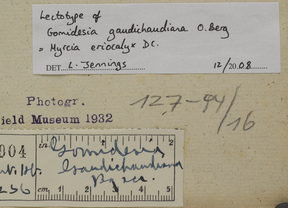 Lectotype of
Gomidesia gaudichaudiana O. Berg
= Myrcia eriocalyx DC.
DET. L. Jennings 12/2008
Photogr.
ield Museum 1932
127-94/16
004
in. 1 2
Gomidesia
Gaudichaudiana
Berg
256
cm. 1 2 3 4 5